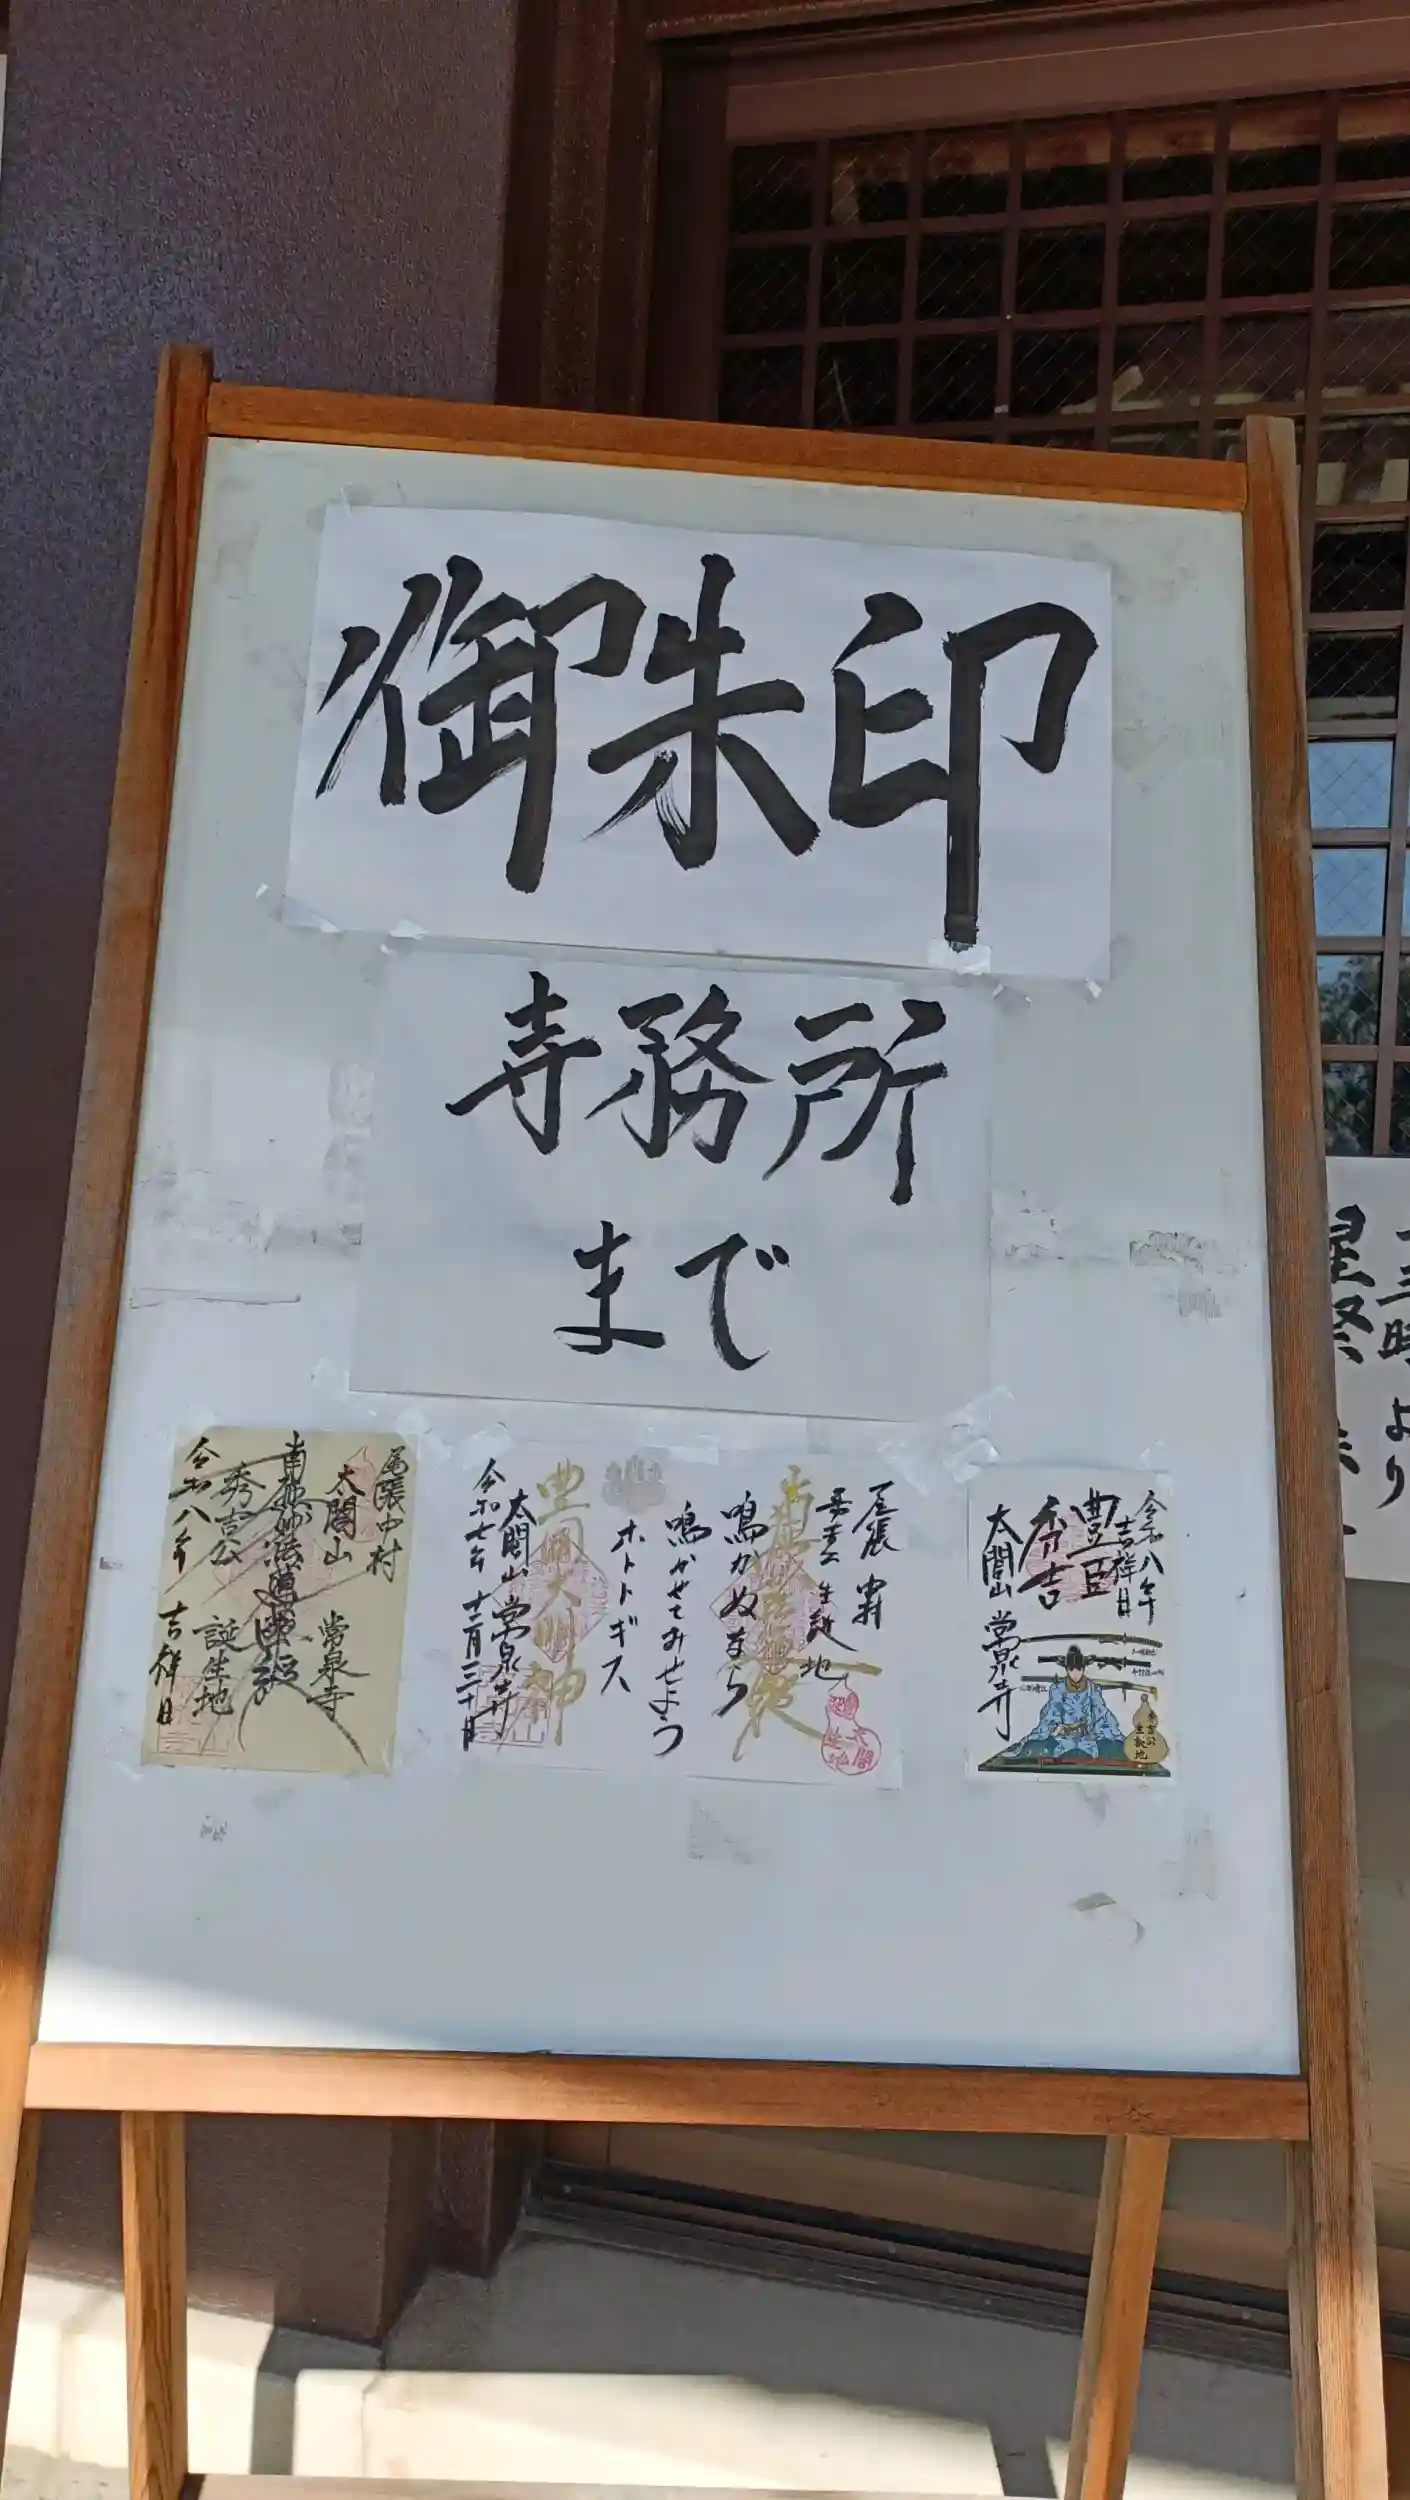 御朱印
寺務所
まで
尾張中村
太閤山 常泉寺
南無妙法蓮華経
秀吉公 誕生地
令和八年 吉祥日
尾張
秀吉公生誕地
鳴かぬなら
鳴かせてみせよう
ホトトギス
豊國大明神
太閤山 常泉寺
令和七年 十二月三十日
令和八年
吉祥日
豊臣
秀吉
太閤山 常泉寺
秀吉公
生誕地
三時より
星祭